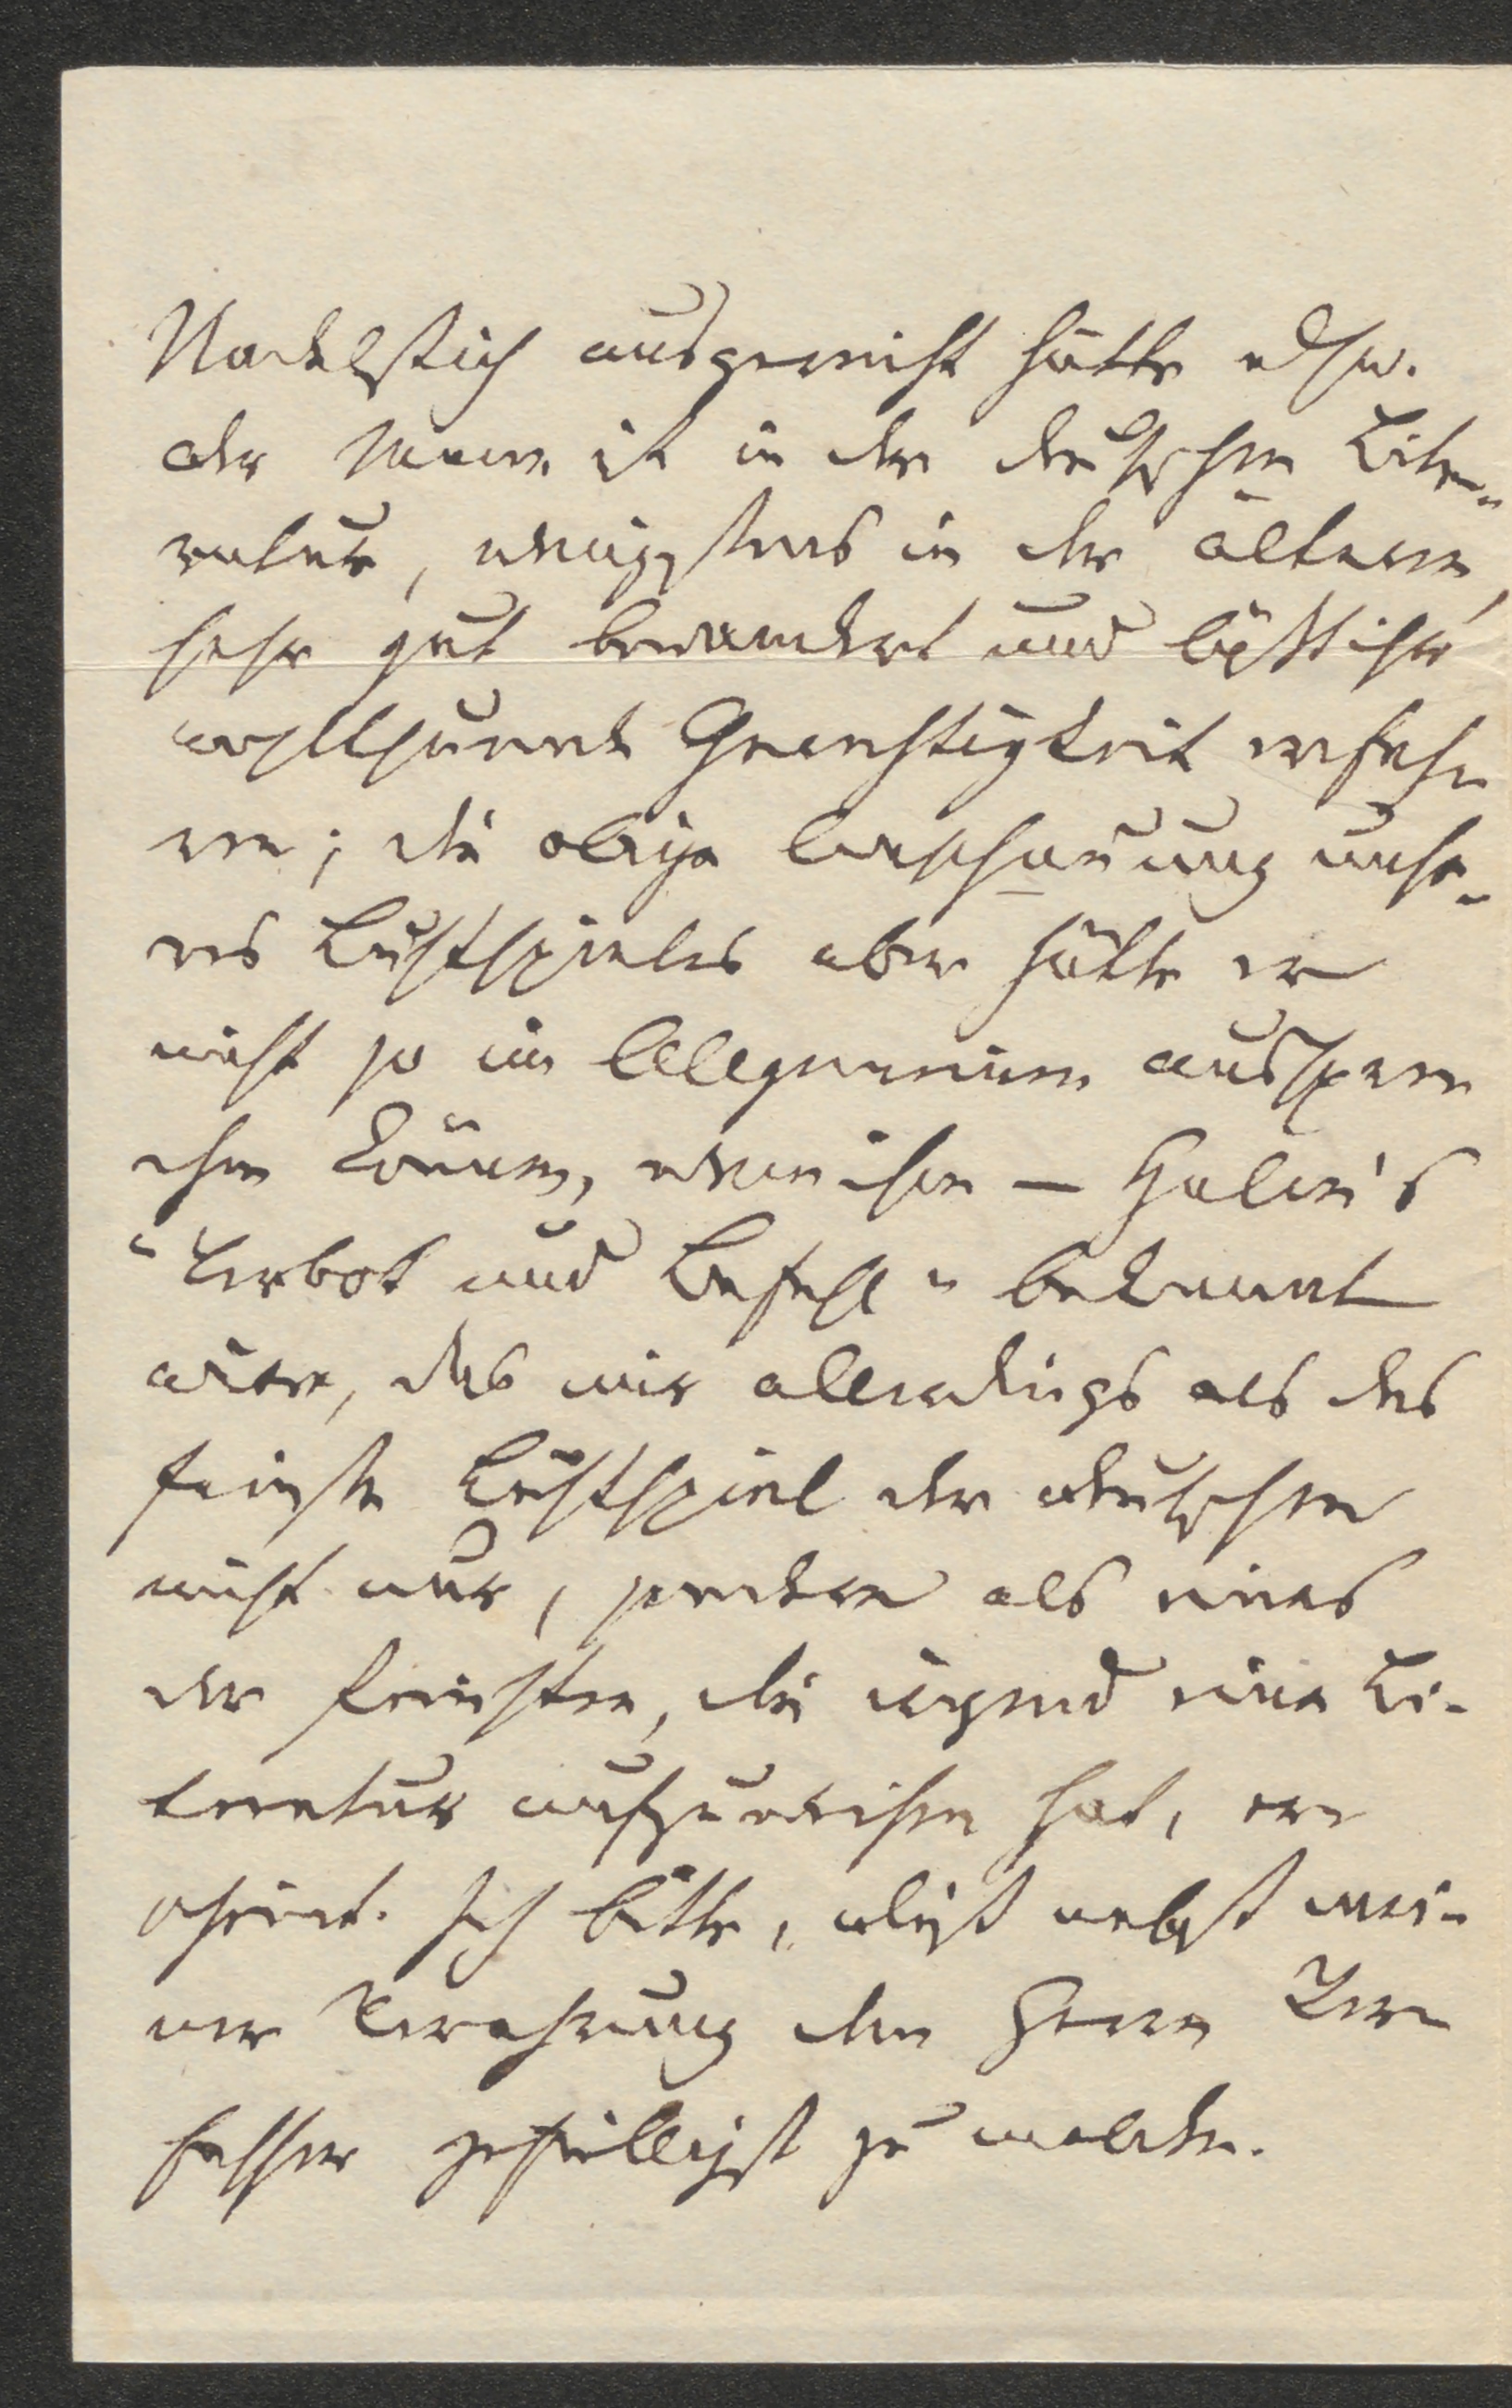 Nadelstich ausgereicht hätte usw.
der Mann ist in der deutschen Lite-
ratur, wenigstens in der älteren,
sehr gut bewandert und läßt ihr
Gerechtigkeit erfah-
ren; die obige Anschauung unse-
res Lustspieles aber hätte er
nicht so im Allgemeinen ausspre-
chen können, wenn ihm – Halm's
"Verbot und Befehl" bekannt
wäre, das mir allerdings als das
feinste Lustspiel der deutschen
nicht nur, sondern als eines
der feinsten, die irgend eine Li-
teratur aufzuweisen hat, er-
scheint. Ich bitte, dieß nebst mei-
ner Verehrung dem Herrn Ver-
fasser gefälligst zu melden.